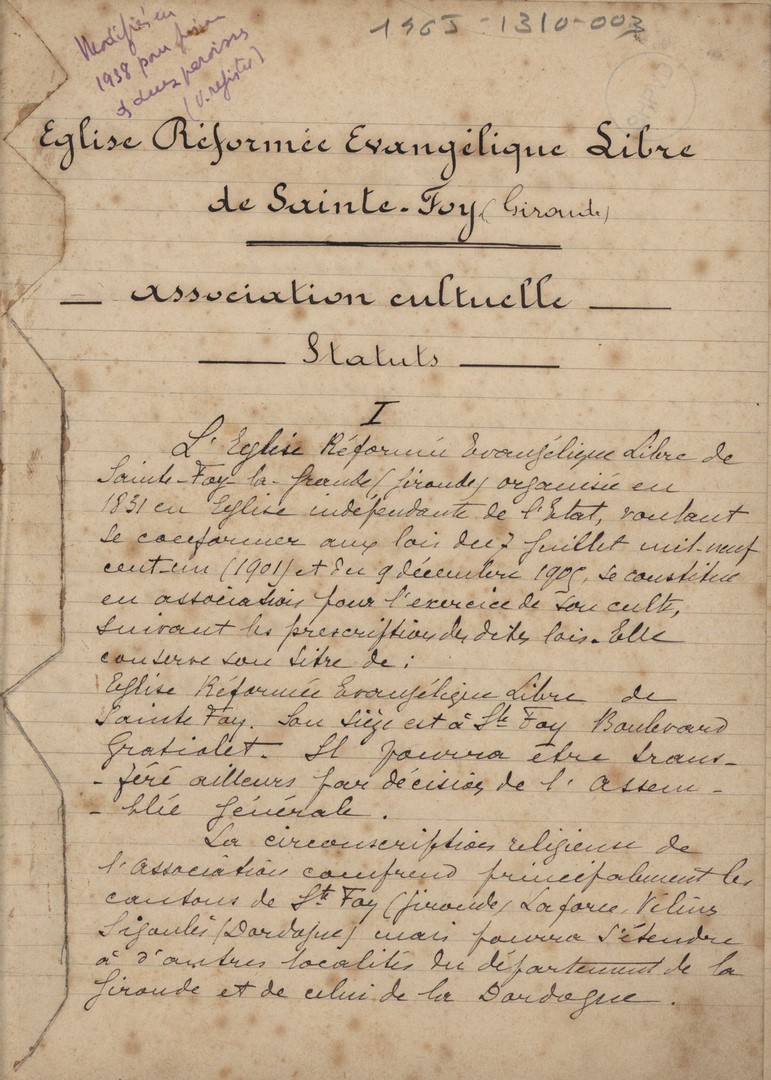 Modifiés en
1938 pour
deux paroisses
(V. registre)
1965-1310-003
SHPVD
Eglise Réformée Evangélique Libre
de Sainte-Foy (Gironde)
Association cultuelle
Statuts
I
L'Eglise Réformée Evangélique Libre de
Sainte-Foy-la-Grande (Gironde) organisée en
1831 en Eglise indépendante de l'Etat, voulant
se conformer aux lois du 7 Juillet mil-neuf
cent-un (1901) et du 9 décembre 1905, se constitue
en association pour l'exercice de son culte,
suivant les prescriptions des dites lois. Elle
conserve son titre de :
Eglise Réformée Evangélique Libre de
Sainte Foy. Son siège est à Ste Foy Boulevard
Gratiolet. Il pourra être trans-
-féré ailleurs par décision de l'Assem-
-blée générale.
La circonscription religieuse de
l'Association comprend principalement les
cantons de Ste Foy (Gironde) Laforce, Vélines
Sigoulès (Dordogne) mais pourra s'étendre
à d'autres localités du département de la
Gironde et de celui de la Dordogne.